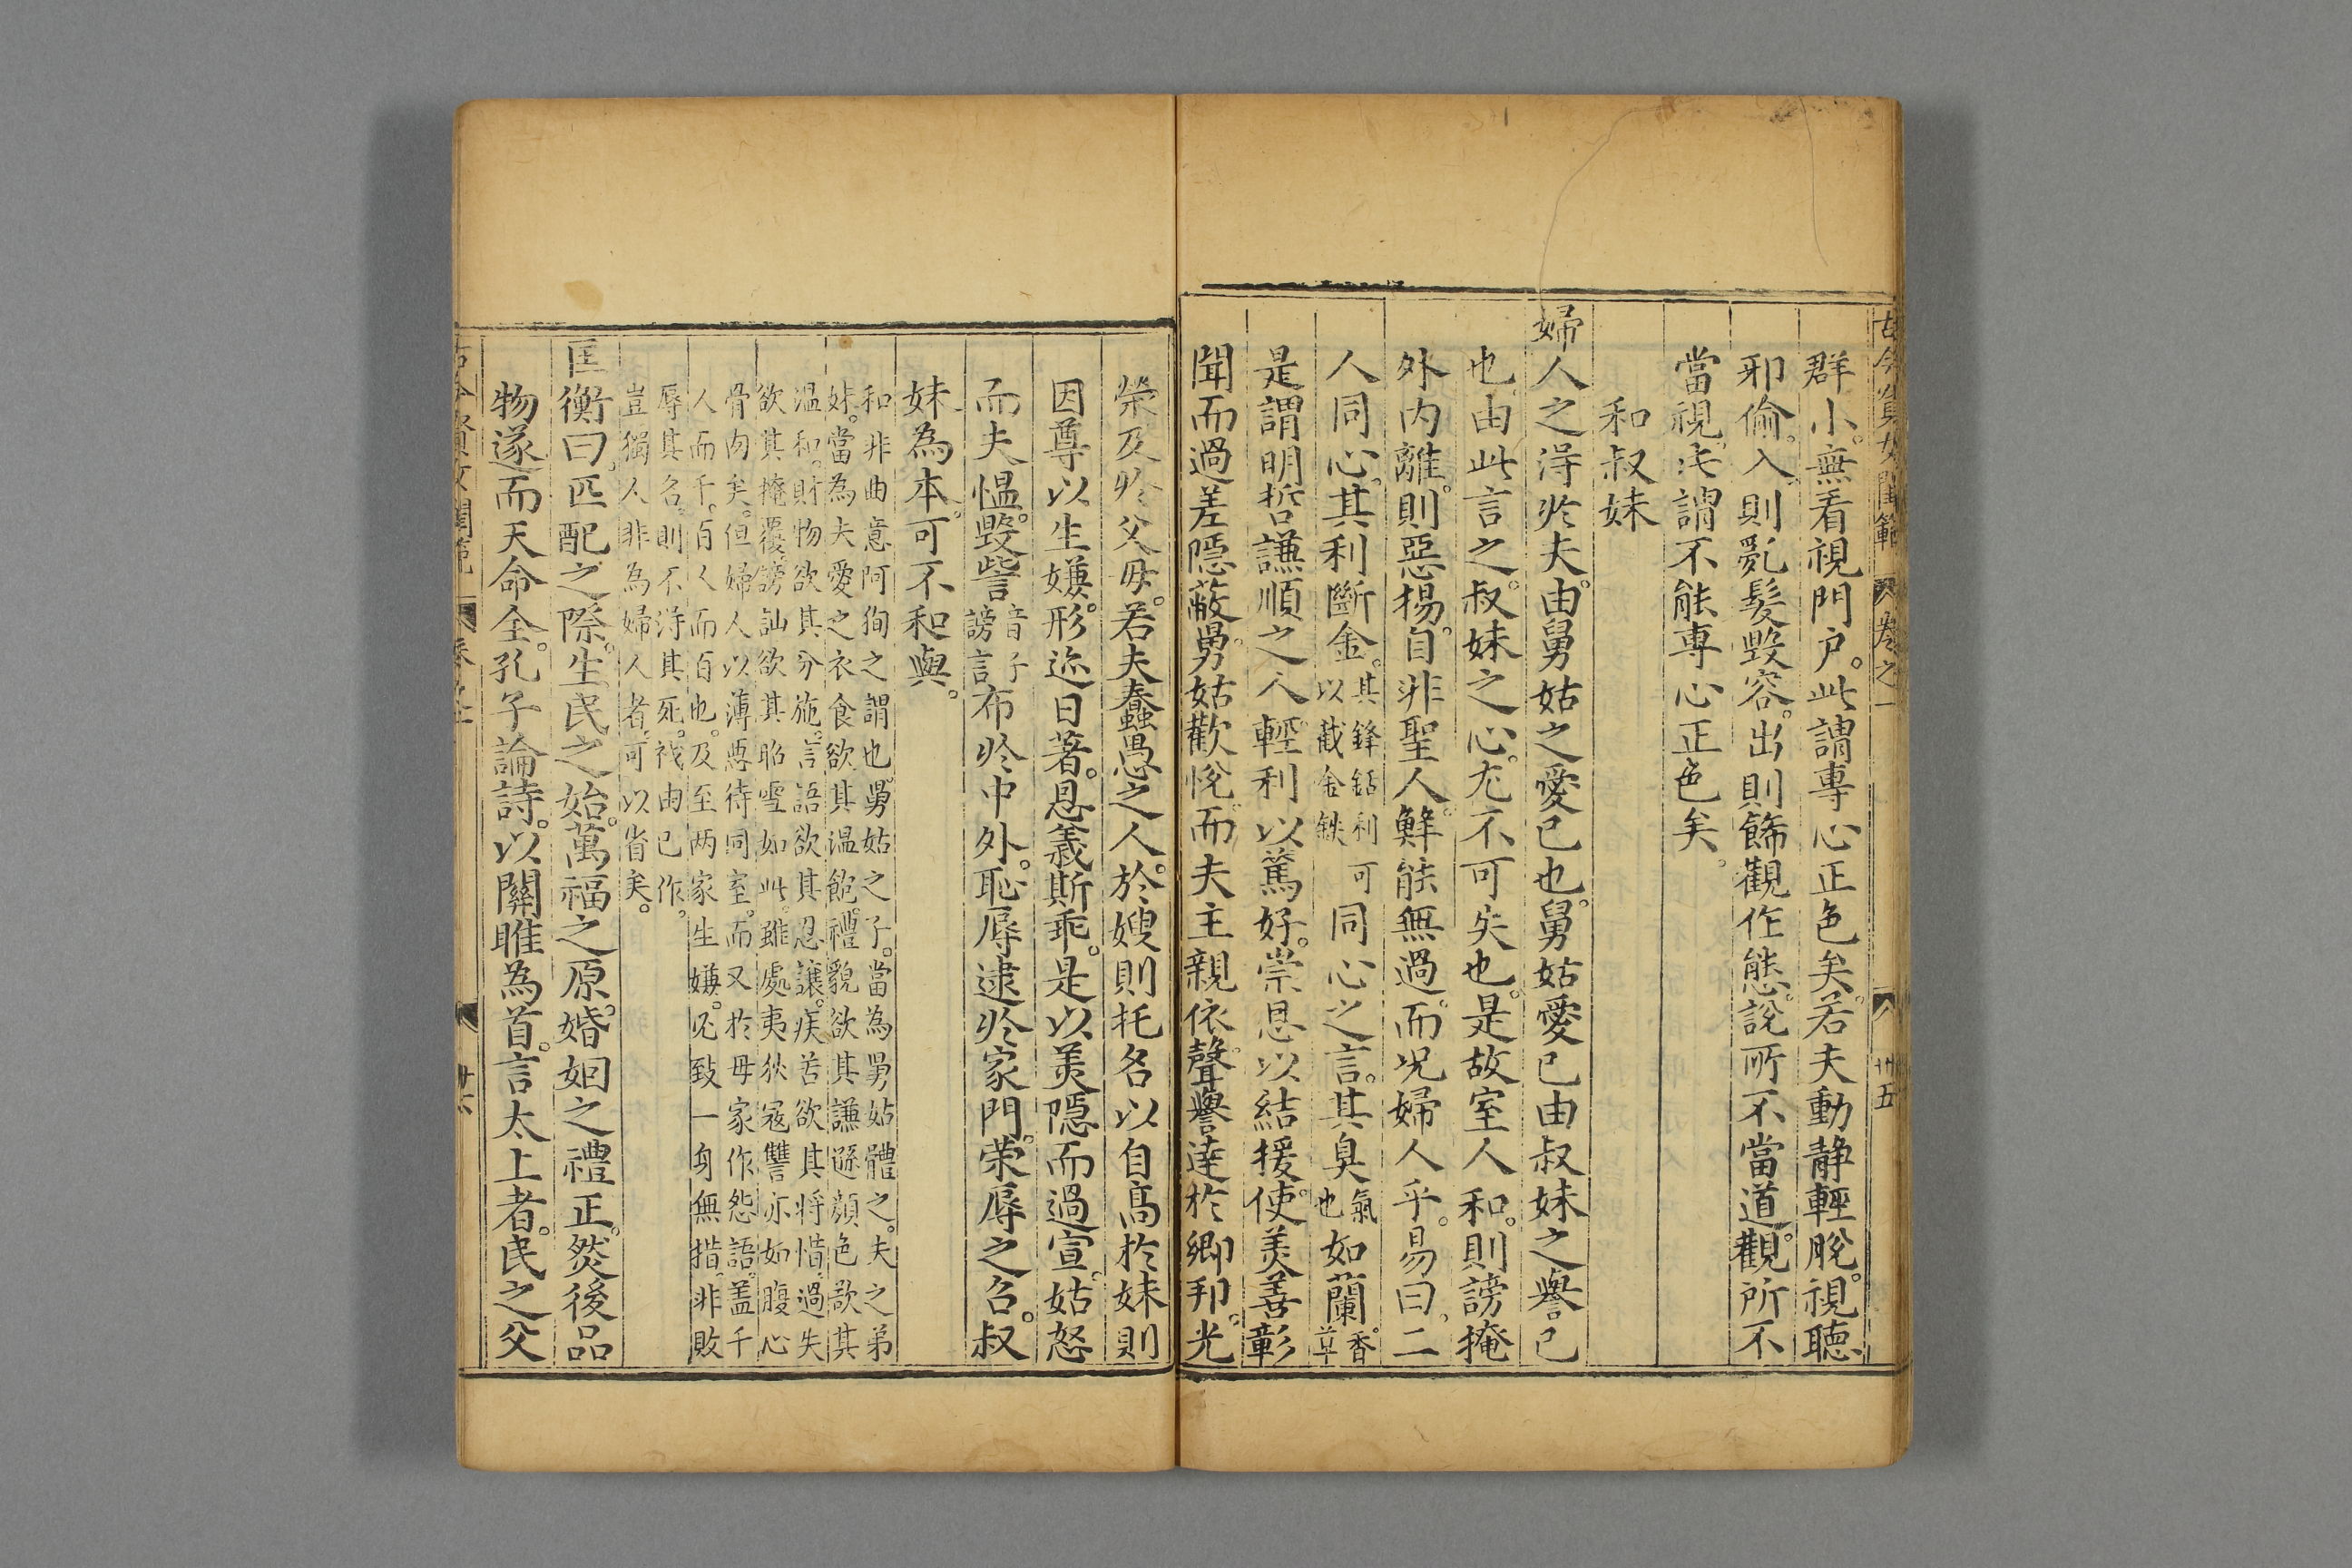 古今賢女閨範 卷之一 卅五
群小。無看視門户。此謂專心正色矣。若夫動静輕脫。視聽
邪偷。入則亂髮毀容。出則餙觀作態。說所不當道。觀所不
當視。此謂不能專心正色矣。
和叔妹
婦人之淂於夫。由舅姑之愛已也。舅姑愛已由叔妹之譽已
也。由此言之。叔妹之心。尤不可失也。是故室人和。則謗掩
外内離。則惡揚。自非聖人。鮮能無過。而况婦人乎。易曰。二
人同心。其利斷金。其鋒銛利可以截金鉄同心之言。其臭氣也如蘭香草
是謂明哲謙順之人。輕利以篤好。崇恩以結援。使美善彰
聞而過差隱蔽。舅姑歡悅。而夫主親依。聲譽達於鄉邦。光
榮及於父母。若夫蠢愚之人。於嫂則托名以自高於妹則
因尊以生嫌。形迹日著。恩義斯乖。是以美隱而過宣。姑怒
而夫愠。毀訾音子謗言布於中外。恥辱逮於家門。荣辱之名。叔
妹為本。可不和與。
和非曲意阿徇之謂也。舅姑之子。當為舅姑體之。夫之弟
妹。當為夫愛之衣食欲其温飽。禮貌欲其謙遜顔色欲其
温和。財物欲其分施。言語欲其忍讓。疾苦欲其將惜。過失
欲其掩覆。謗訕欲其昭雪如此。雖處夷狄寇讐亦如腹心
骨肉矣。但婦人以薄惡待同室。而又於母家作怨語。盖千
人而千。百人而百也。及至两家生嫌。必致一身無措。非敗
辱其名。則不淂其死。戕由已作。
豈獨人非為婦人者。可以省矣。
匡衡曰。匹配之際。生民之始。萬福之原。婚姻之禮正。然後品
物遂而天命全。孔子論詩。以關雎為首。言太上者。民之父